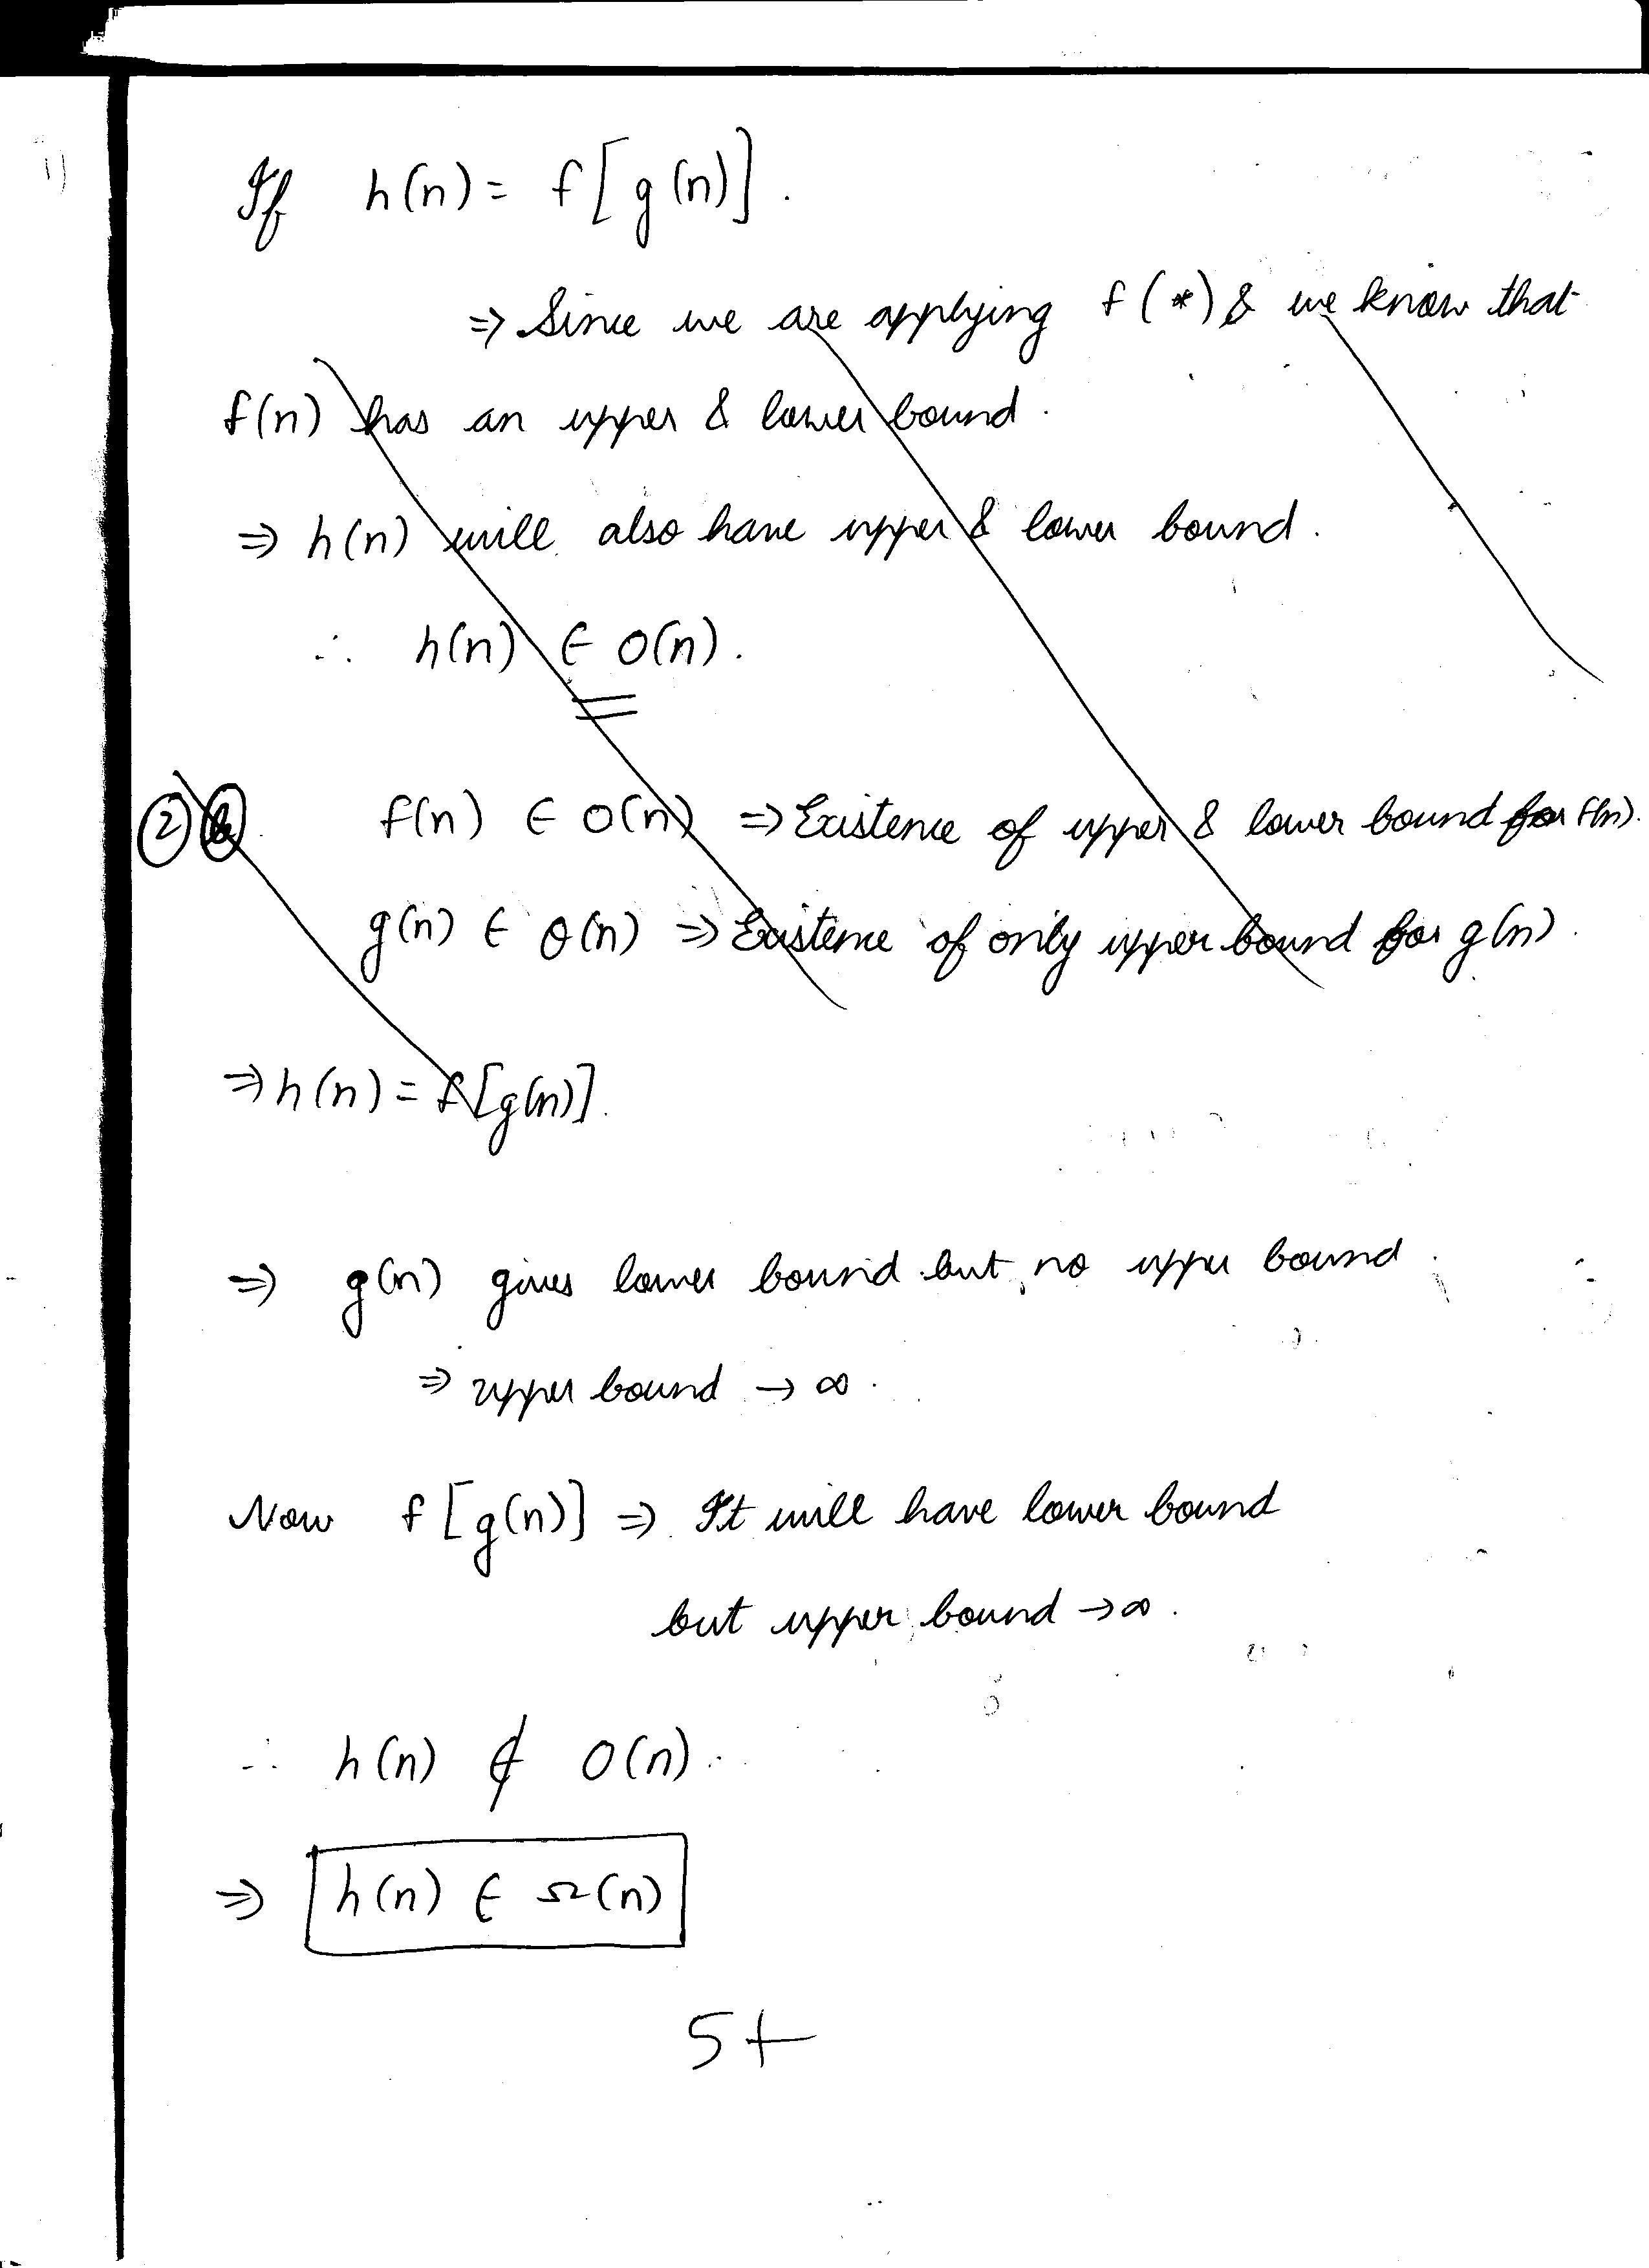 1)
If h(n) = f[g(n)].
⇒ Since we are applying f(*) & we know that
f(n) has an upper & lower bound.
⇒ h(n) will also have upper & lower bound.
∴ h(n) ∈ O(n).
② f(n) ∈ O(n) ⇒ Existence of upper & lower bound for f(n).
g(n) ∈ θ(n) ⇒ Existence of only upper bound for g(n).
⇒ h(n) = f[g(n)].
⇒ g(n) gives lower bound but no upper bound.
⇒ upper bound → ∞.
Now f[g(n)] ⇒ It will have lower bound
but upper bound → ∞.
∴ h(n) ∉ O(n).
⇒ h(n) ∈ Ω(n)
5+